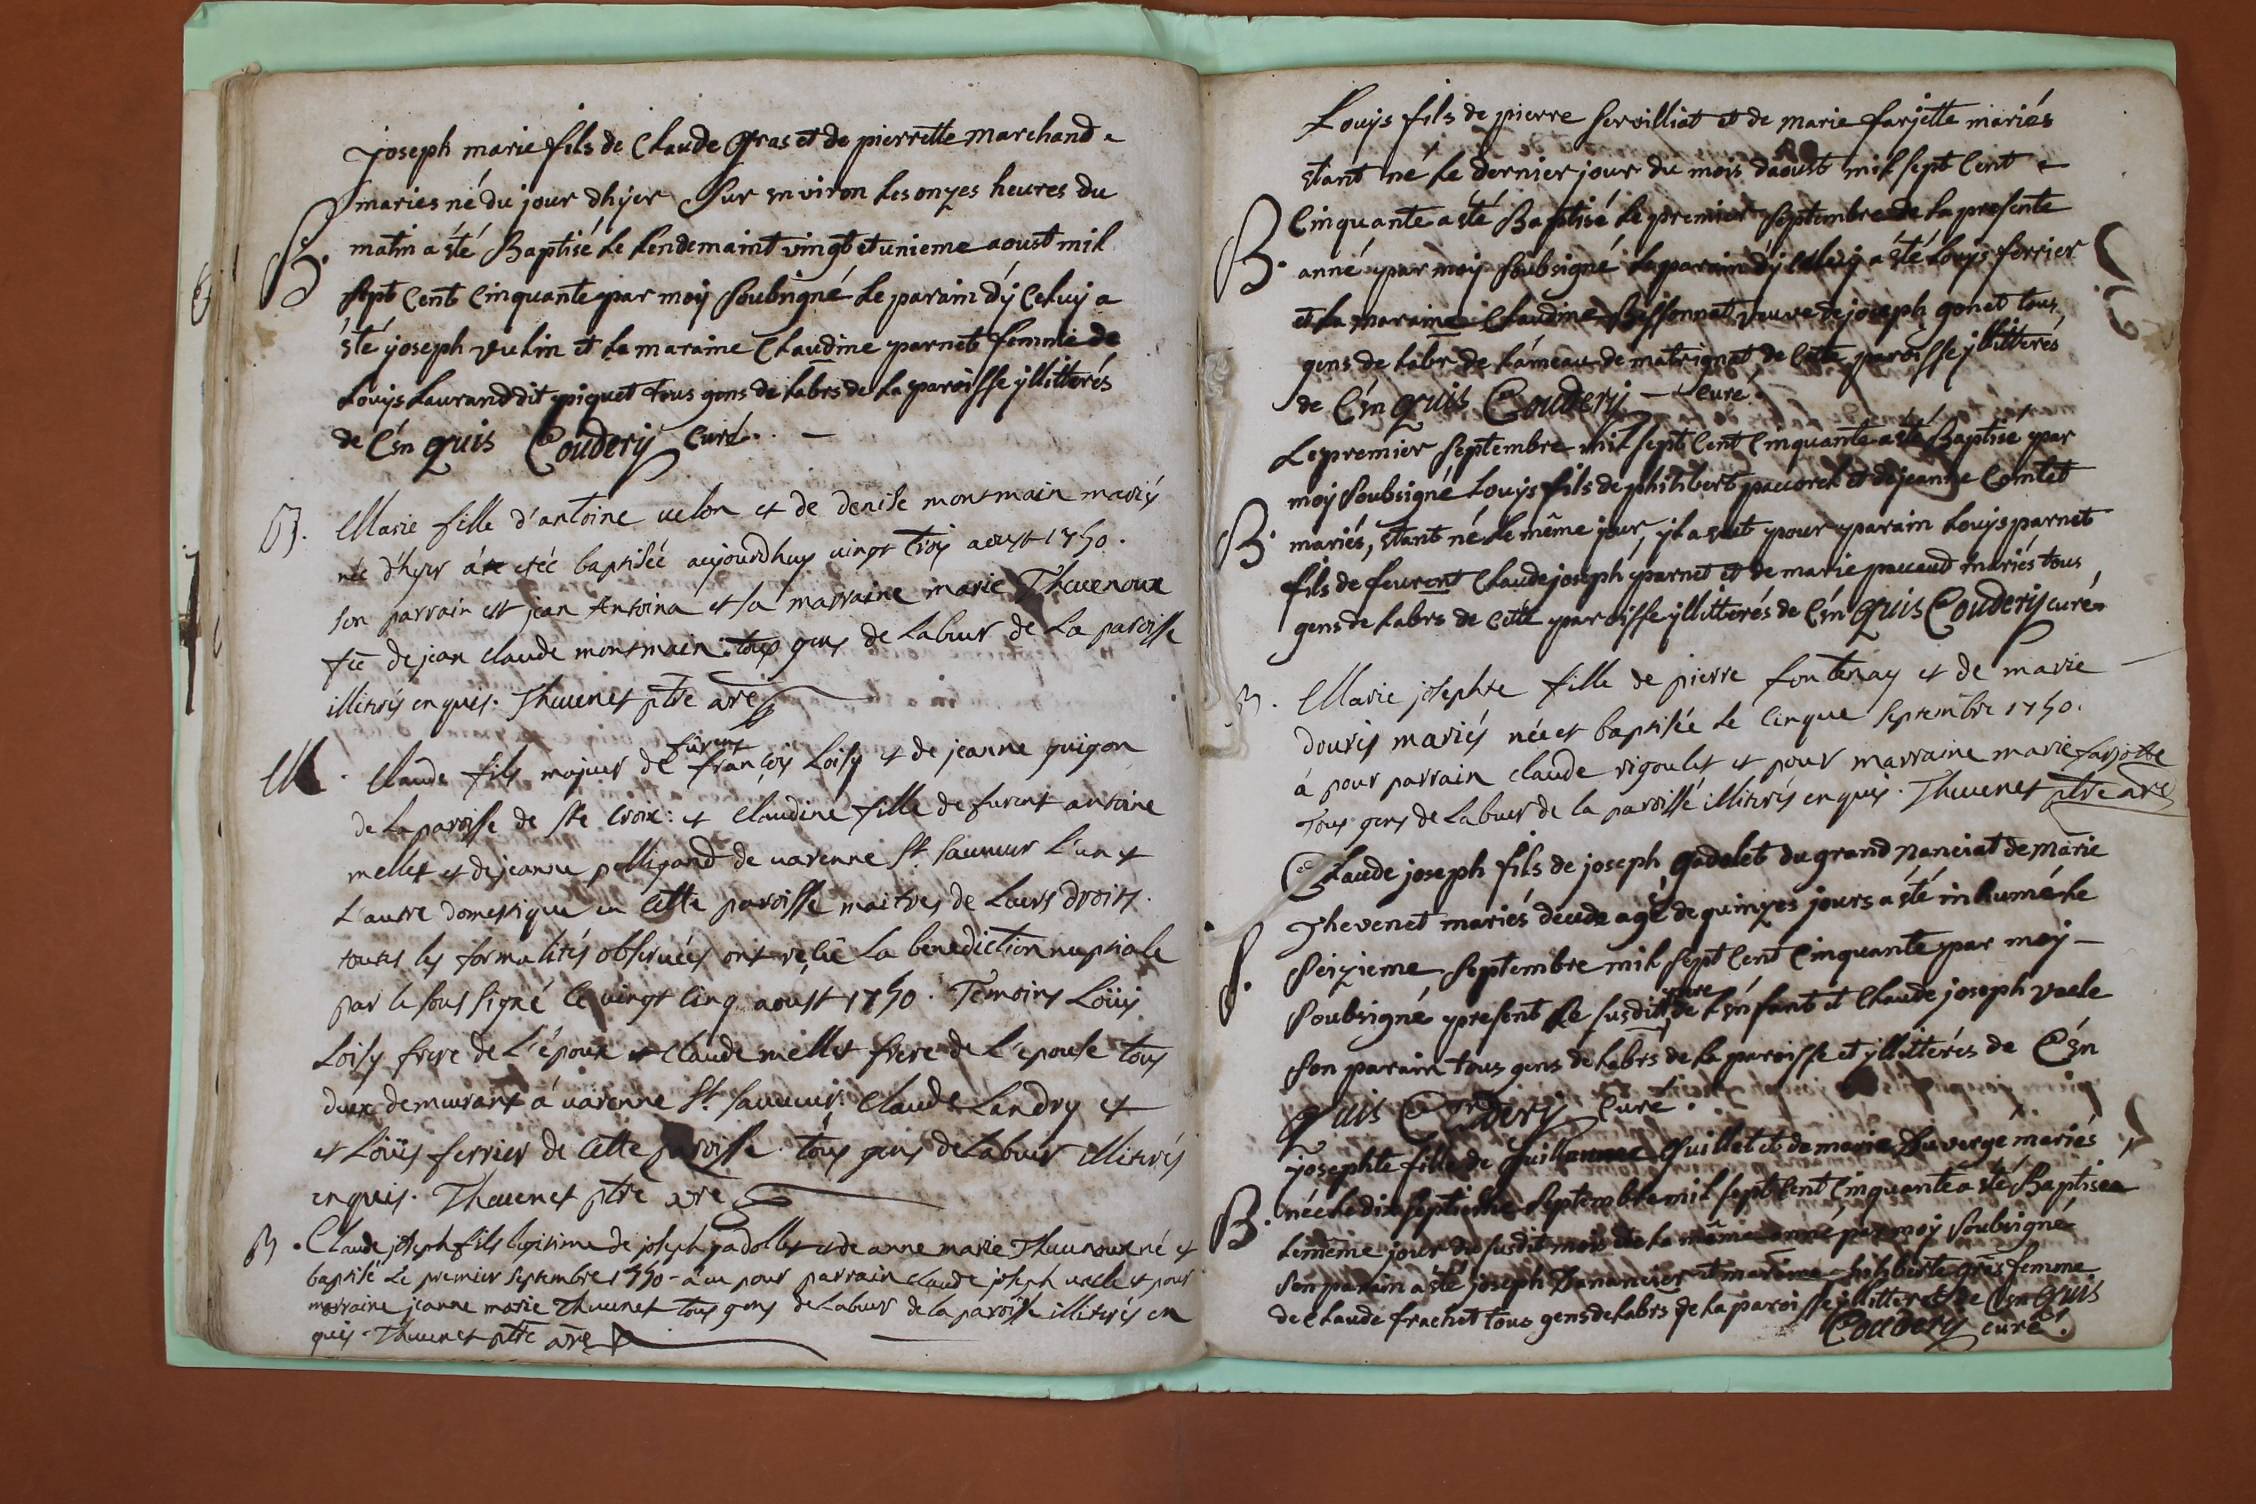 Joseph marie fils de Claude Gras et de pierrette marchand
maries né du jour dhyer Sur environ les onzes heures du
B.
matin a été Baptisé le lendemaint vingt et unieme aoust mil
sept Cent Cinquante par moy soubsigné le parain dÿ Celuy a
été joseph vulin et la maraine Claudine parnet femme de
Louys Laurand dit piquet tous gens de labrs de la paroisse ÿllitterés
de Cén quis Coudery Curé.
B. Marie fille d'antoine velon et de denise montmain mariés
née d'hyer a été baptisée aujourdhuy vingt trois aoust 1750.
son parrain est jean Antoine et sa marraine marie Thevenoux
fe de jean claude montmain. tous gens de labeur de la paroisse
illiterés enquis. Thevenet ptre
M. Claude fils majeur de furent françois Loisy et de jeanne guigon
de la paroisse de ste Croix: et Claudine fille de furent antoine
mellet et de jeanne pelligand de varenne St. sauveur l'un et
l'autre domestique en Cette paroisse maitres de leurs droits.
toutes les formalités observées ont reçûe la benediction nuptiale
par le soussigné le vingt cinq aoust 1750. Temoins Loüis
Loisy frere de l'époux et claude mellet frere de l'epouse tous
deux demeurant á varenne St. sauveur. Claude Landry et
et Loüis ferrier de cette paroisse. tous gens de labeur illiterés
enquis. Thevenet ptre
B. Claude joseph fils legitime de joseph gadollet et de anne marie Thevenoux né et
baptisé le premier septembre 1750 - a eu pour parrain claude joseph vaele et pour
marraine jeanne marie Thevenet tous gens de labeur de la paroisse illiterés en
quis. Thevenet ptre
Louys fils de pierre servilliat et de marie farjette mariés
étant né le dernier jour du mois daoust mil sept Cent
B.
Cinquante a été Baptisé le premier septembre de la presente
anné par moy soubsigné le parain dÿ Celuy a été Louys ferrier
et la maraine Claudine Bessonnat veuve de joseph gonet tous
gens de labr de lámeau de matrignat de Cette paroisse ÿllitterés
de Cén quis Coudery Curé.
Le premier septembre mil sept Cent Cinquante a été Baptisé par
moy soubsigné Louys fils de philibert et de jeanne Comtet
B.
mariés, étant né le même jour, il a eut pour parain Louys parnet
fils de feurent Claude joseph parnet et de marie pauaud mariés tous
gens de labrs de Cette paroisse ÿllitterés de Cén quis Coudery curé
B. Marie josephte fille de pierre fontenay et de marie
douris mariés née et baptisée le Cinque septembre 1750.
á pour parrain claude rigoulet et pour marraine marie farjotte
tous gens de labeur de la paroisse illiterés enquis. Thevenet ptre
Claude joseph fils de joseph gadolet du grand nanciat de marie
Thevenet mariés decede agé de quinzes jours a été inhumé le
S.
seizieme septembre mil sept Cent Cinquante par moy
soubsigné, present le susdit pere de lénfant et Claude joseph vaele
son parain tous gens de labrs de la paroisse et ÿllitterés de Cén
quis Coudery Curé.
josephte fille de Guillaume Guillet et de marie Duverge mariés
née le dix septieme septembre mil sept Cent Cinquante a été Baptisée
B.
le même jour du susdit mois et de la même anné par moy soubsigné
son parain a été joseph Danancier et maraine philiberte gras femme
de Claude frachet tous gens de labrs de la paroisse ÿllitterés de Cén quis
Coudery curé.